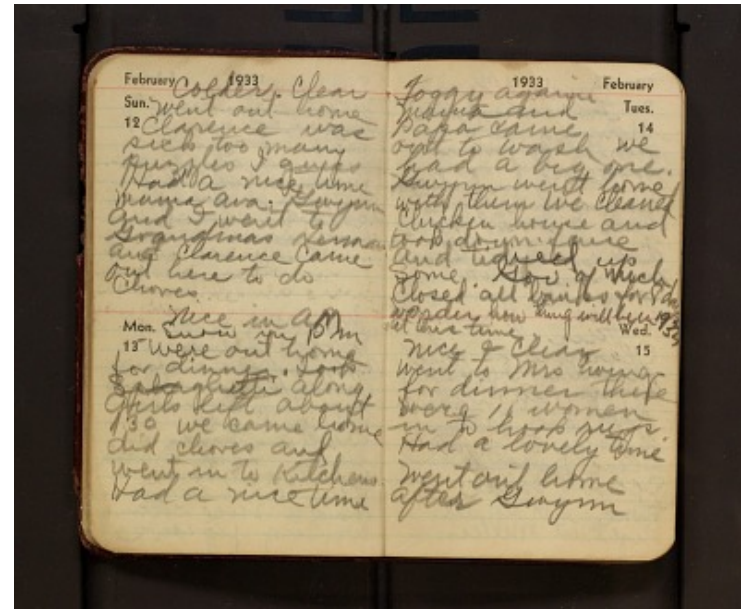 February 1933
Colder. Clear
Sun. went out home
12 Clarence was
sick too many
puzzles I guess
Had a nice time
mama ava. Gwynn
and I went to
Grandmas
and Clarence came
out here to do
Chores
nice in AM
Mon. Snow in PM
13 Were out home
for dinner. Took
Spaghetti along
Girls left about
1:30 we came home
did chores and
went in to Kitchens
Had a nice time
1933 February
Foggy again
mama and Tues.
Papa came 14
out to wash we
had a big one.
Gwynn went home
with them we cleaned
Chicken house and
took down
and up
some. Gov of Mich
Closed all banks for 8 days
wonder how things will be in 1934
at this time Wed.
nice & Clear 15
went to Mrs
for dinner there
were 11 women
in to hook rugs.
Had a lovely time
Went out home
after Gwynn